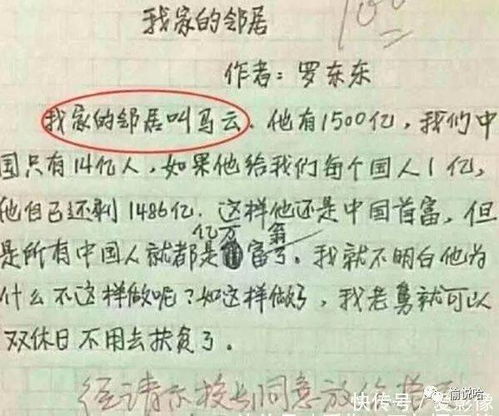 100
我家的邻居
作者：罗东东
我家的邻居叫马云、他有1500亿，我们中
国只有14亿人，如果他给我们每个国人1亿，
他自己还剩1486亿．这样他还是中国首富，但
亿万 翁
是所有中国人就都是富了．我就不明白他为
什么不这样做呢？如这样做好，我老舅就可以
双休日不用去扶贫了。
经请示校长同意放
快传号/爱影像
愉悦哈